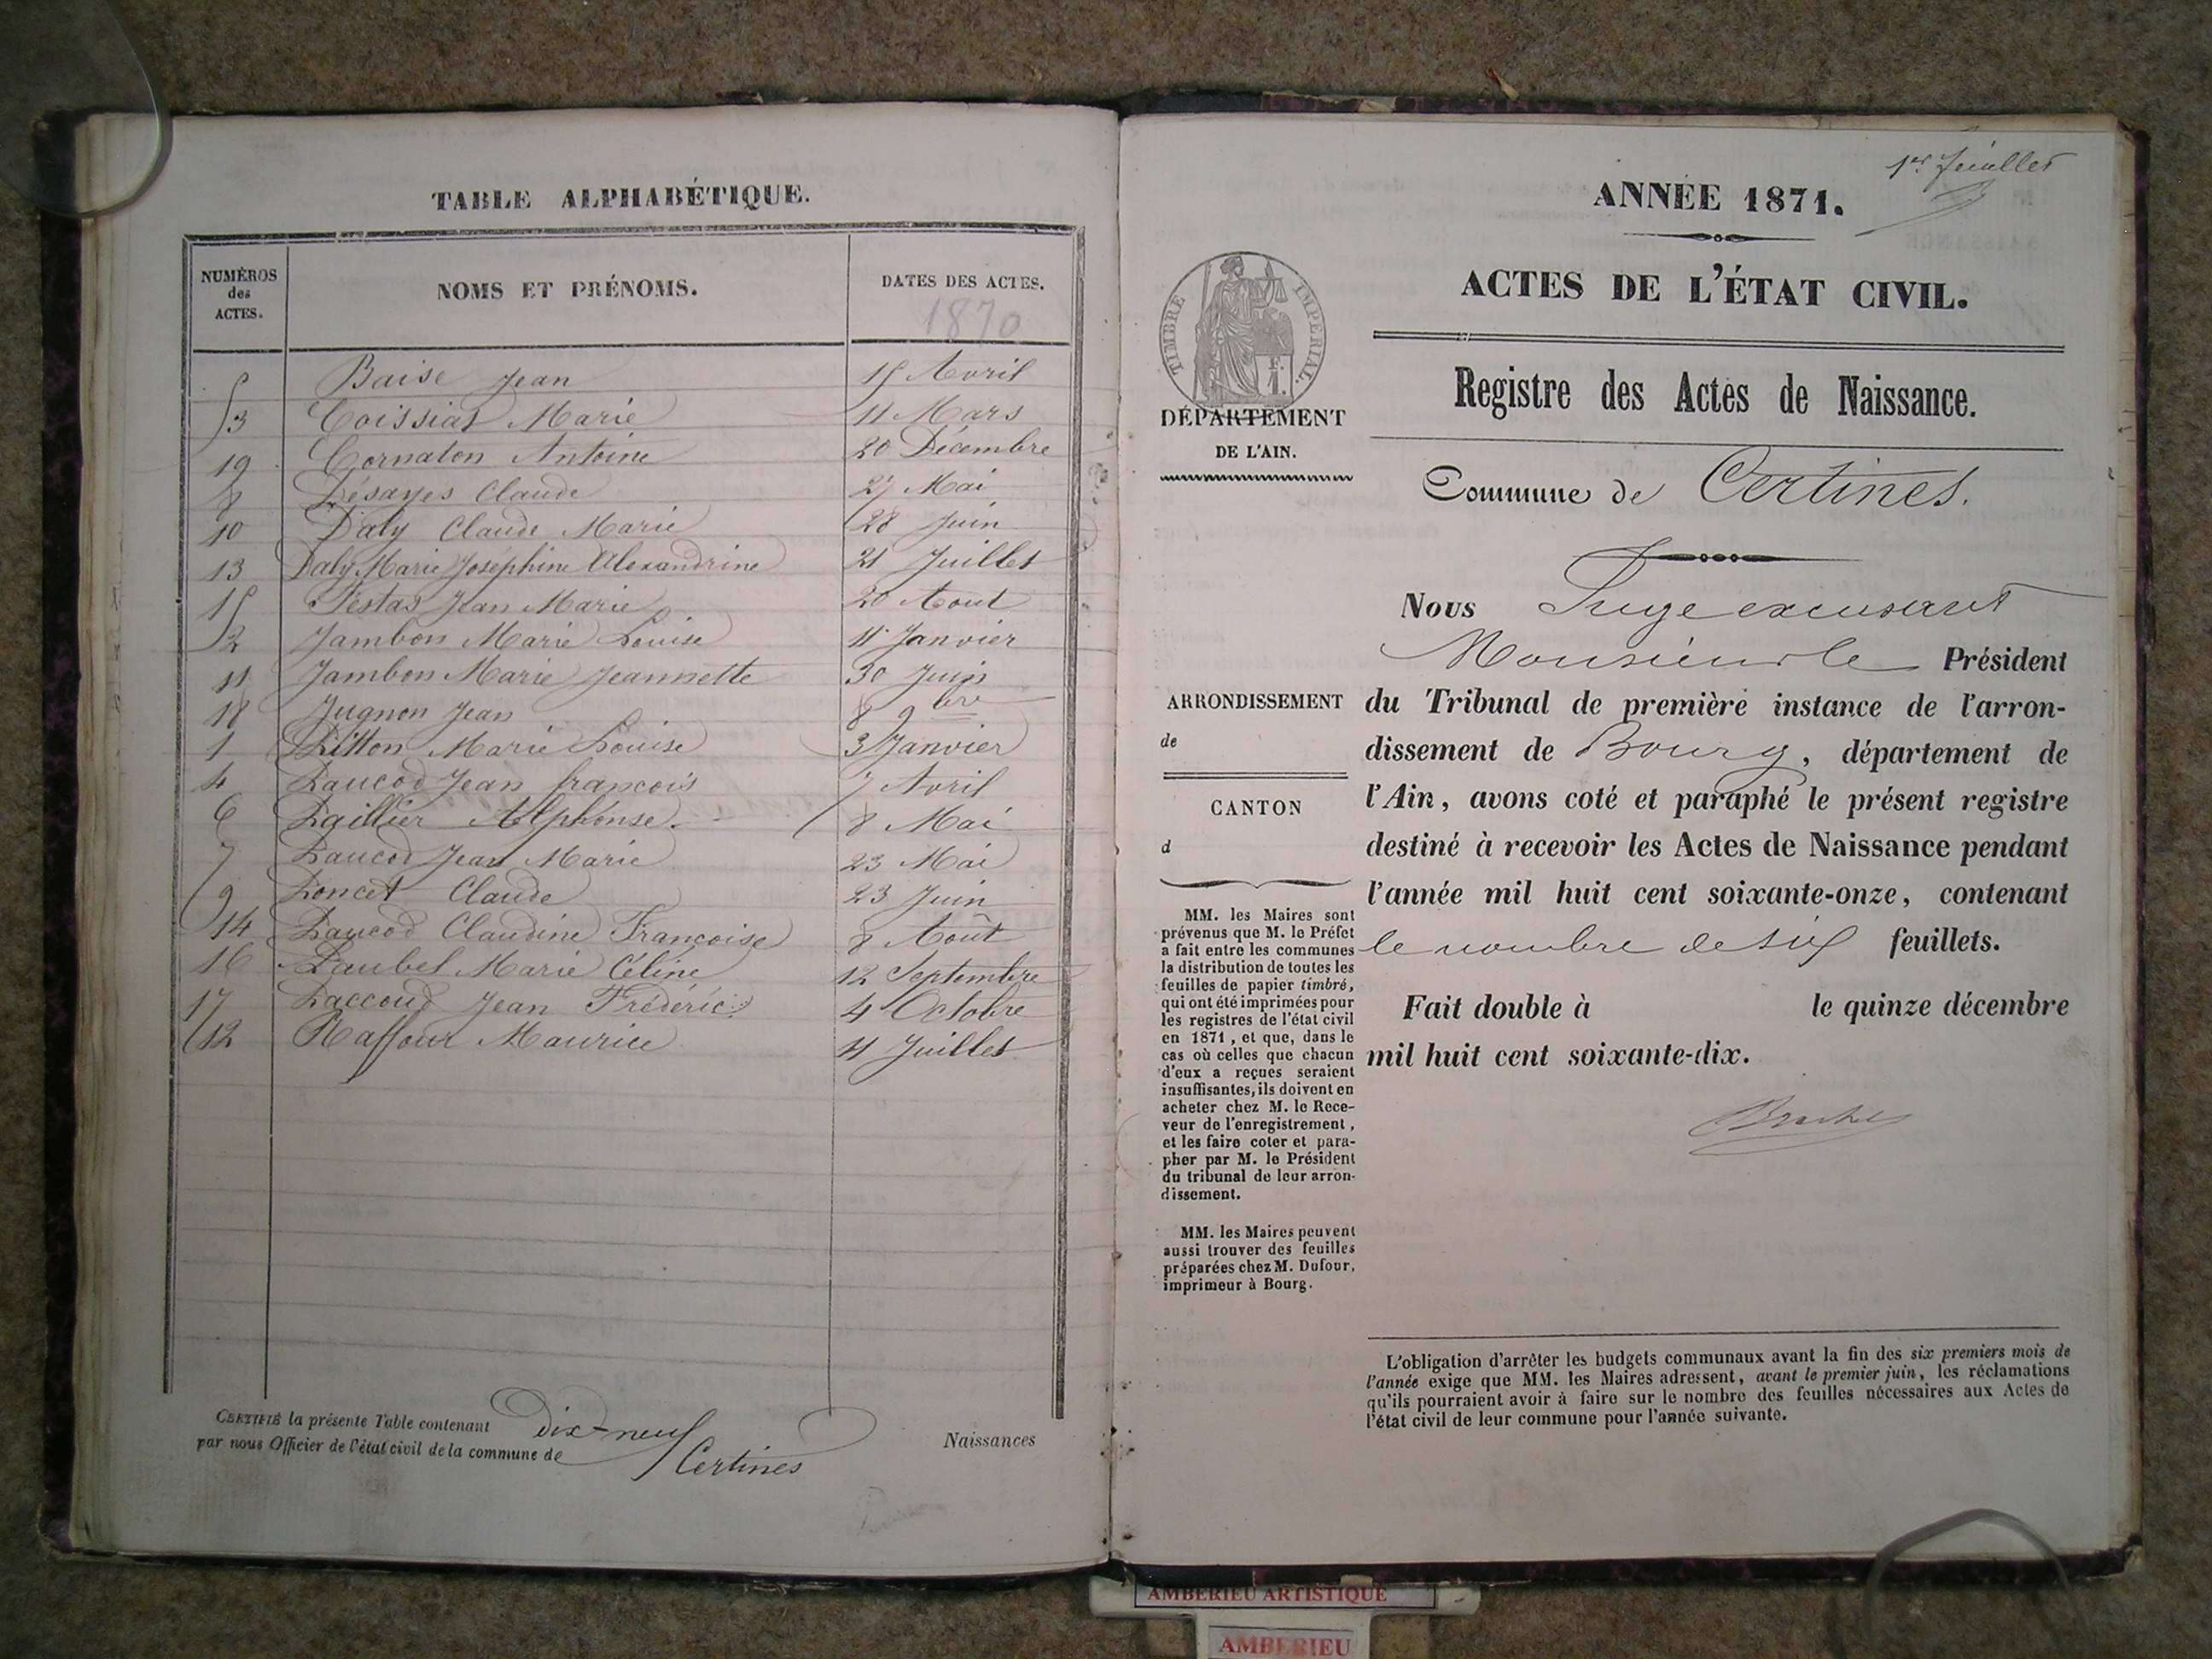 TABLE ALPHABÉTIQUE.
NUMÉROS des ACTES. NOMS ET PRÉNOMS. DATES DES ACTES.
1870
5 Baise Jean 15 Avril
3 Coissiat Marie 11 Mars
19 Cornaton Antoine 20 Décembre
8 Désayes Claude 27 Mai
10 Daly Claude Marie 28 Juin
13 Daly Marie Joséphine Alexandrine 21 Juillet
15 Festas Jean Marie 20 Aout
2 Jambon Marie Louise 11 Janvier
11 Jambon Marie Jeannette 30 Juin
18 Jugnon Jean 8 9bre
1 Marie Louise 3 Janvier
4 Jean francois 7 Avril
6 Alphonse 8 Mai
7 Jean Marie 23 Mai
9 Poncet Claude 23 Juin
14 Claudine Françoise 8 Août
16 Marie Céline 12 Septembre
17 Jean Frédéric 4 Octobre
12 Raffour Maurice 11 Juillet
CERTIFIÉ la présente Table contenant Dix-neuf Naissances
par nous Officier de l'état civil de la commune de Certines
1er feuillet
ANNÉE 1871.
ACTES DE L'ÉTAT CIVIL.
TIMBRE IMPÉRIAL.
DÉPARTEMENT
DE L'AIN.
Registre des Actes de Naissance.
Commune de Certines.
Nous Juge excusant
Monsieur le Président
ARRONDISSEMENT
de
CANTON
d
du Tribunal de première instance de l'arron-
dissement de Bourg, département de
l'Ain, avons coté et paraphé le présent registre
destiné à recevoir les Actes de Naissance pendant
l'année mil huit cent soixante-onze, contenant
le nombre de six feuillets.
Fait double à le quinze décembre
mil huit cent soixante-dix.
MM. les Maires sont
prévenus que M. le Préfet
a fait entre les communes
la distribution de toutes les
feuilles de papier timbré,
qui ont été imprimées pour
les registres de l'état civil
en 1871, et que, dans le
cas où celles que chacun
d'eux a reçues seraient
insuffisantes, ils doivent en
acheter chez M. le Rece-
veur de l'enregistrement,
et les faire coter et para-
pher par M. le Président
du tribunal de leur arron-
dissement.
MM. les Maires peuvent
aussi trouver des feuilles
préparées chez M. Dufour,
imprimeur à Bourg.
L'obligation d'arrêter les budgets communaux avant la fin des six premiers mois de
l'année exige que MM. les Maires adressent, avant le premier juin, les réclamations
qu'ils pourraient avoir à faire sur le nombre des feuilles nécessaires aux Actes de
l'état civil de leur commune pour l'année suivante.
AMBERIEU ARTISTIQUE
AMBERIEU